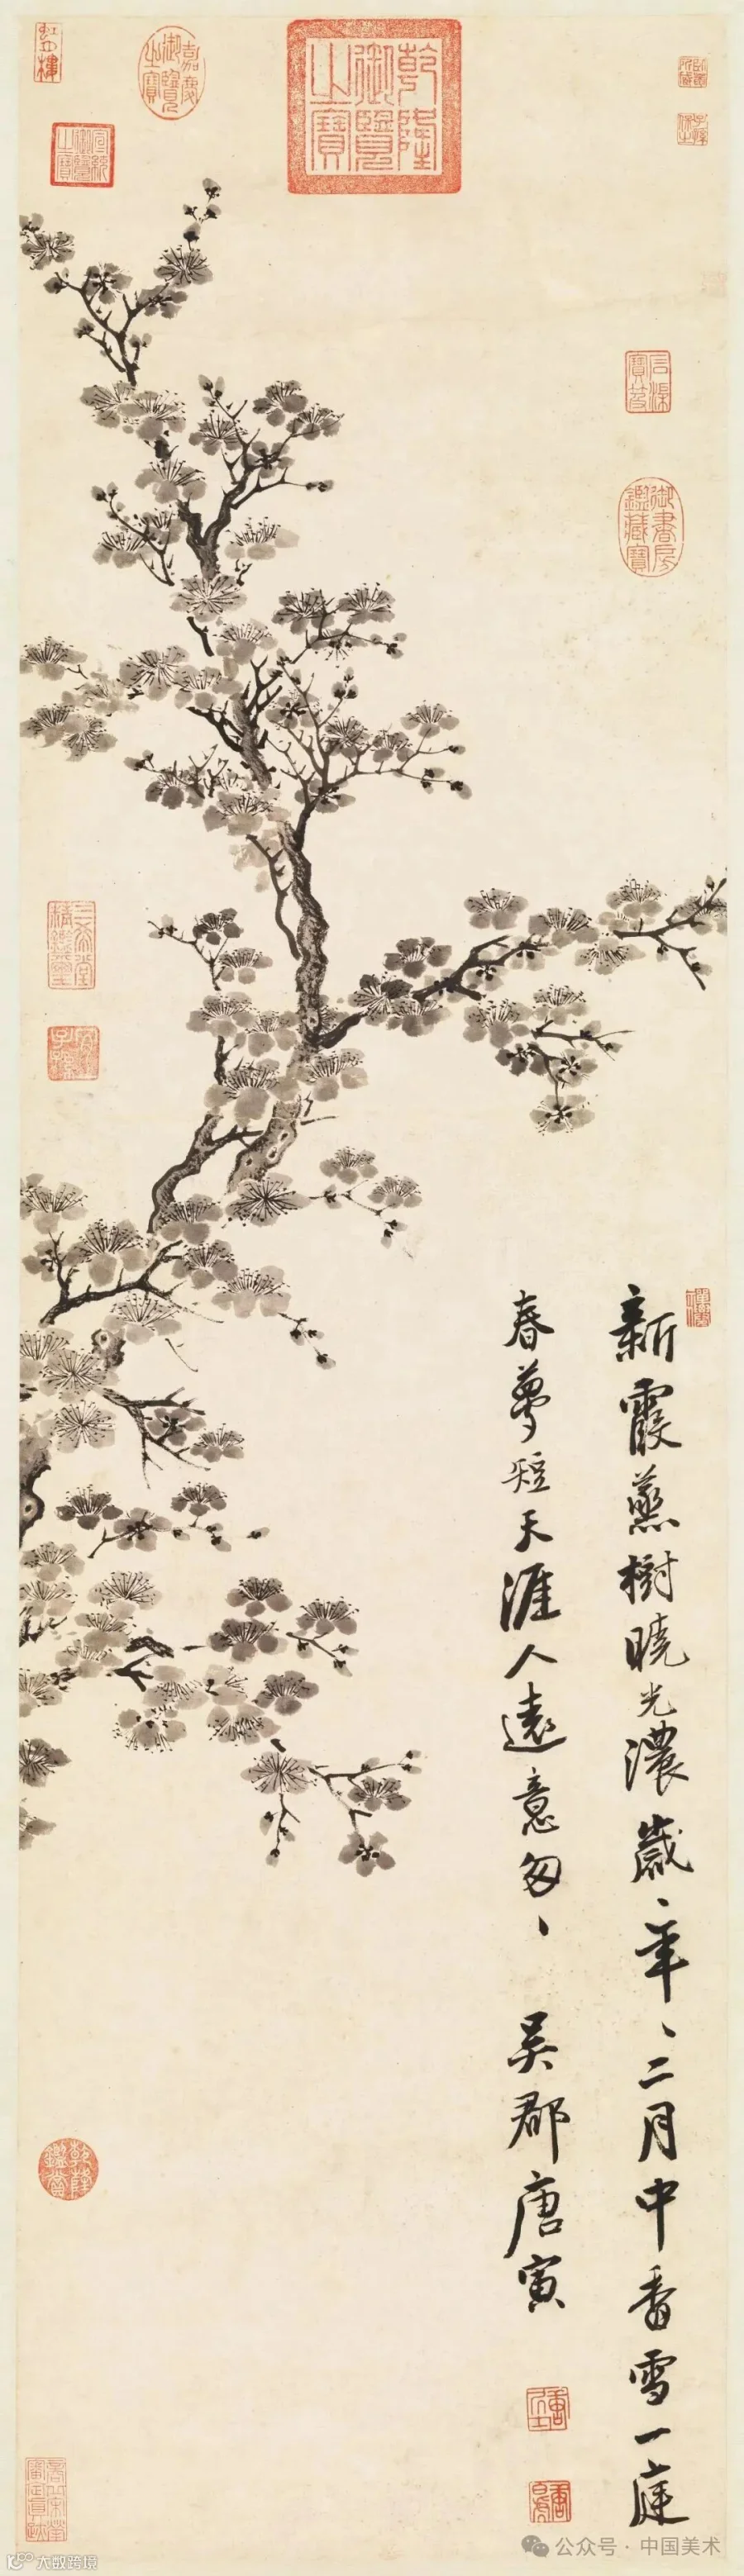 乾隆御覽之寶
嘉慶御覽之寶
宣統御覽之寶
石渠寶笈
御書房鑑藏寶
新霞蒸樹曉光濃歲、年、二月中香雪一庭
春夢短天涯人遠意匆、 吳郡唐寅
三希堂精鑑璽
宜子孫
乾隆鑑賞
公众号 · 中国美术
大数跨境